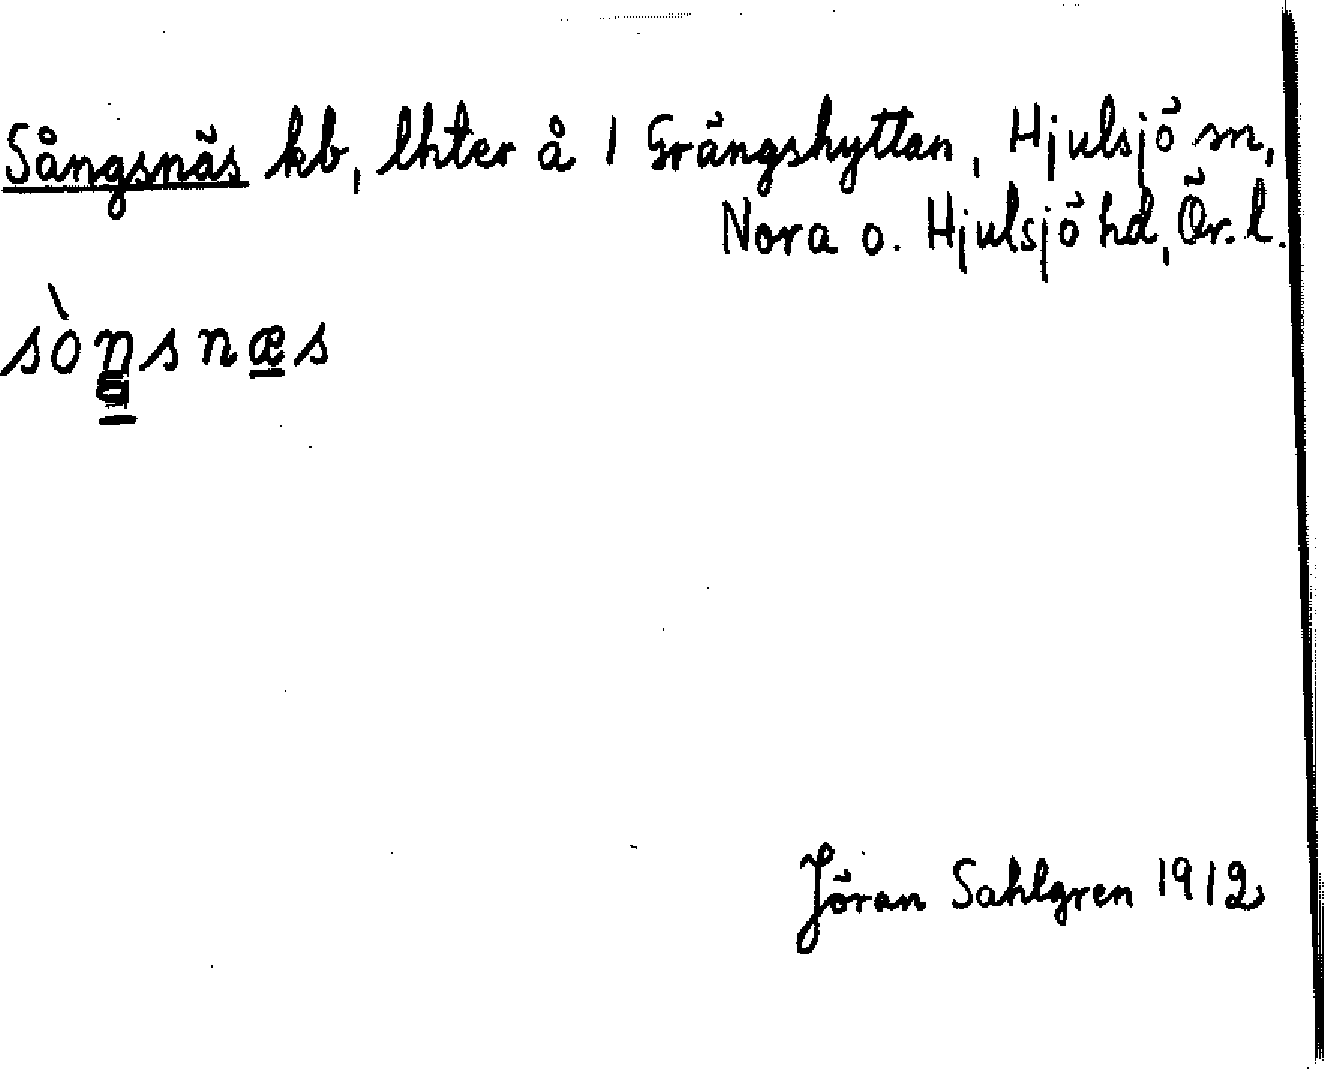 Sångsnäs kb, lhter å 1 Grängshyttan, Hjulsjö sn,
Nora o. Hjulsjö hd, Ör. l.
sòŋsnæs
Jöran Sahlgren 1912